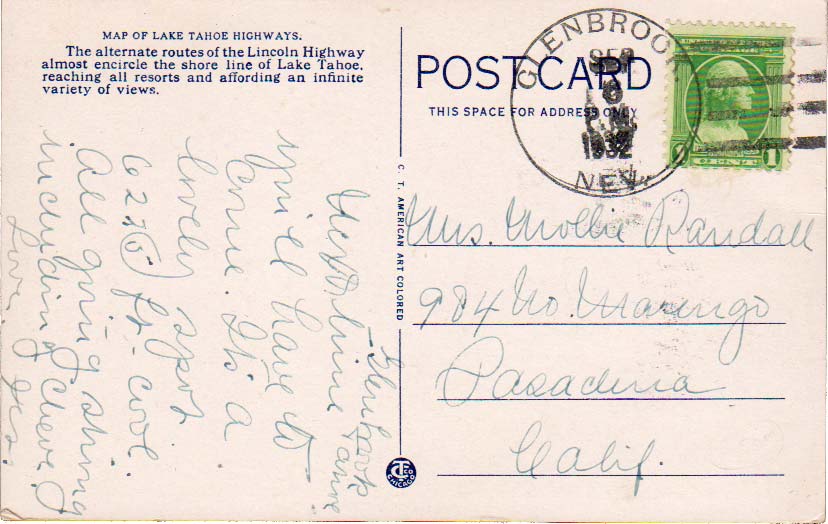 MAP OF LAKE TAHOE HIGHWAYS.
The alternate routes of the Lincoln Highway
almost encircle the shore line of Lake Tahoe,
reaching all resorts and affording an infinite
variety of views.
POST CARD
THIS SPACE FOR ADDRESS ONLY
GLENBROOK
SEP
6
P.M.
1932
NEV.
1 CENT 1
C. T. AMERICAN ART COLORED
CHICAGO
Mrs. Mollie Randall
984 No. Marengo
Pasadena
Calif.
Glenbrook
Tahoe
Next time
you'll have to
come. It's a
lovely spot
6225 ft - cool
All going strong
including Chevy
Love,